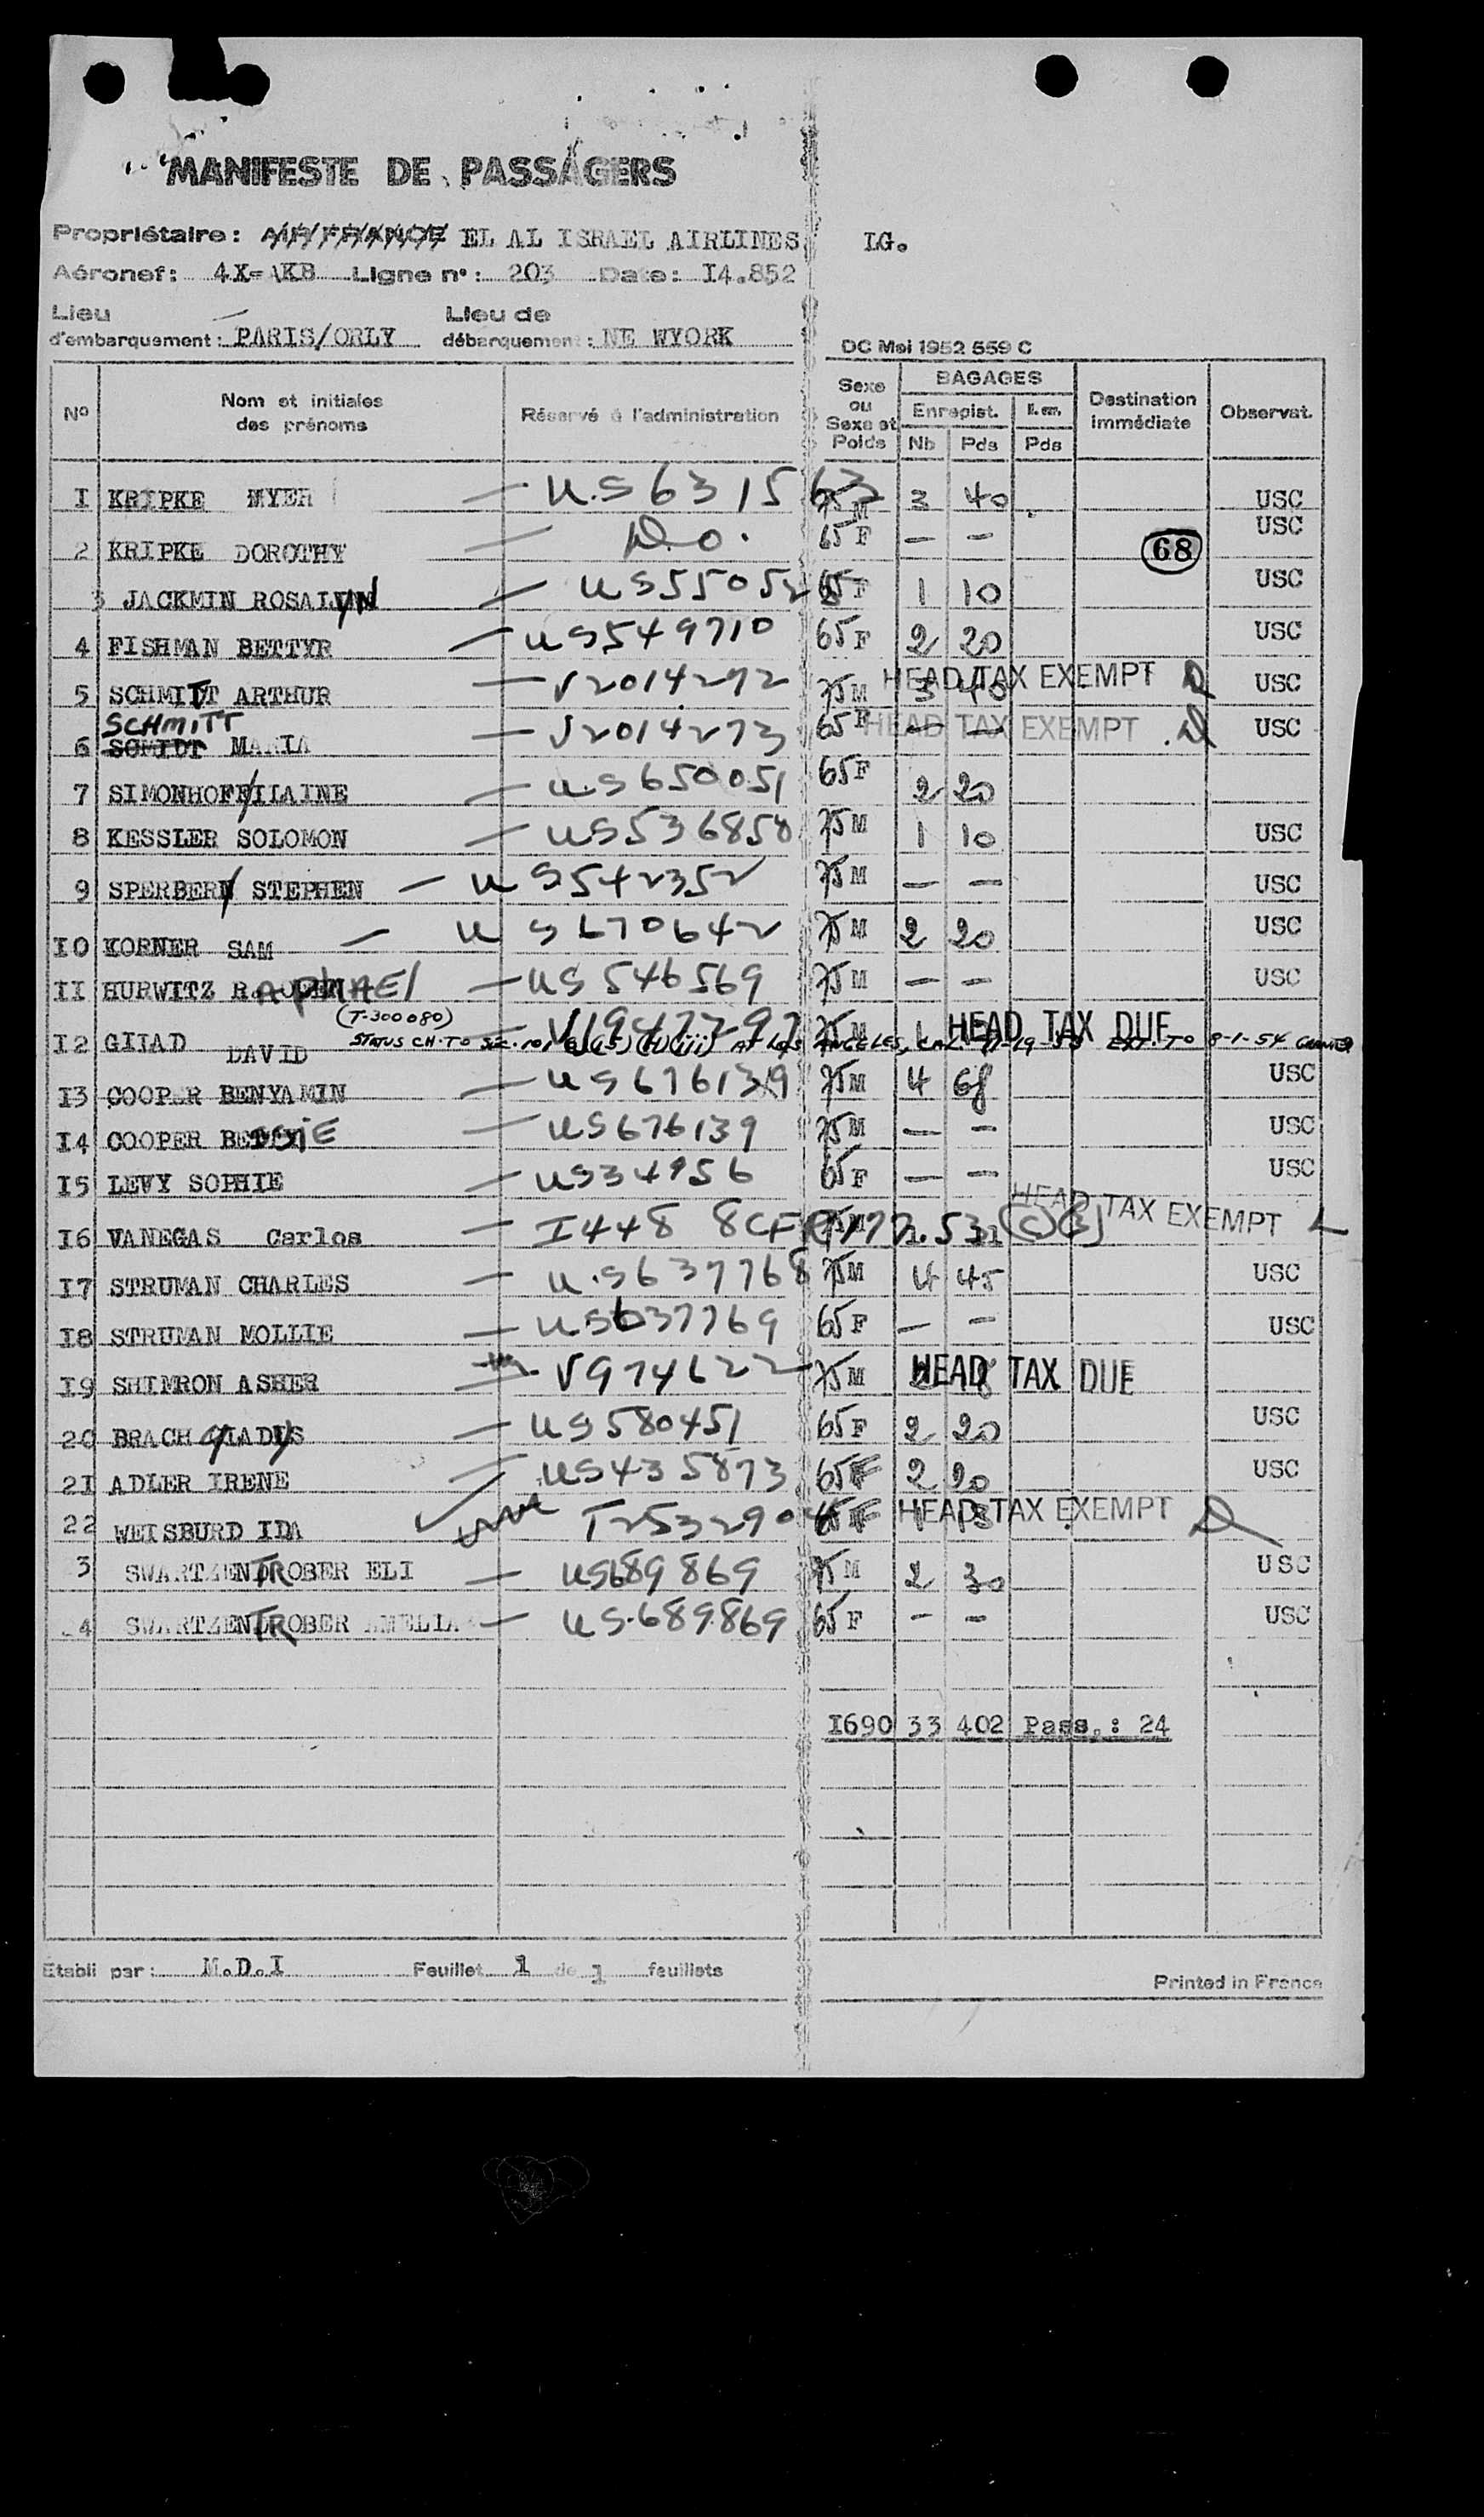 MANIFESTE DE PASSAGERS
Propriétaire: AIR FRANCE EL AL ISRAEL AIRLINES LG.
Aéronef: 4X-AKB Ligne n°: 203 Date: I4.852
Lieu d'embarquement: PARIS/ORLY Lieu de débarquement: NE WYORK
DC Mai 1952 559 C
N° Nom et initiales des prénoms Réservé à l'administration Sexe ou Sexe et Poids BAGAGES Enregist. Nb Pds Pds Destination immédiate Observat.
I KRIPKE MYER — U.S 631563 75 M 3 40 USC
2 KRIPKE DOROTHY — D.o. 65 F — — USC
68
3 JACKMIN ROSALYN — US 55052 65 F 1 10 USC
4 FISHMAN BETTYR — US549710 65 F 2 20 USC
5 SCHMITT ARTHUR — V2014272 75 M 3 40 HEAD TAX EXEMPT USC
SCHMITT
6 SCMIDT MARIA — V2014273 65 F — — HEAD TAX EXEMPT USC
7 SIMONHOFF ILAINE — U.S 650051 65 F 2 20
8 KESSLER SOLOMON — US536858 75 M 1 10 USC
9 SPERBER STEPHEN — US542352 75 M — — USC
I0 KORNER SAM — US 670642 75 M 2 20 USC
II HURWITZ RAphAEl — US 546569 75 M — — USC
(T-300080)
I2 GIIAD DAVID — V1947297 75 M 1 HEAD TAX DUE
STATUS CH. TO SEC. 101 (15) (iii) AT LOS ANGELES, CAL. EXT. TO 8-1-54
I3 COOPER BENYAMIN — US676139 75 M 4 68 USC
I4 COOPER BESSIE — US676139 75 M — — USC
I5 LEVY SOPHIE — US34956 65 F — — USC
I6 VANEGAS Carlos — I448 8CFR 75 M HEAD TAX EXEMPT
I7 STRUMAN CHARLES — U.S637768 75 M 4 45 USC
I8 STRUMAN MOLLIE — US637769 65 F — — USC
I9 SHIMRON ASHER — V974622 75 M HEAD TAX DUE
20 BRACH GLADYS — US 580451 65 F 2 20 USC
2I ADLER IRENE — US435873 65 F 2 20 USC
22 WEISBURD IDA T253290 65 F HEAD TAX EXEMPT
3 SWARTZENTROBER ELI — US689869 75 M 2 30 USC
4 SWARTZENTROBER AMELIA — US.689869 65 F — — USC
I690 33 402 Pass.: 24
Etabli par: M.D.I Feuillet 1 de 1 feuillets
Printed in France